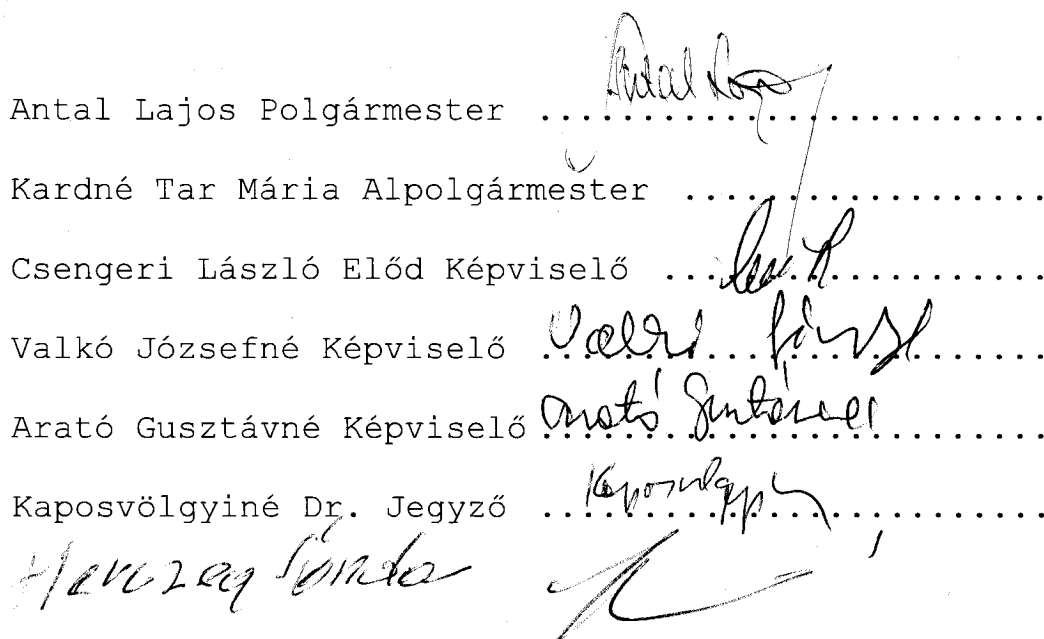 Antal Lajos Polgármester .............................. Antal Lajos
Kardné Tar Mária Alpolgármester .....................
Csengeri László Előd Képviselő ......................
Valkó Józsefné Képviselő .............................. Valkó
Arató Gusztávné Képviselő .............................. Arató Gusztávné
Kaposvölgyiné Dr. Jegyző ..............................
Herczeg